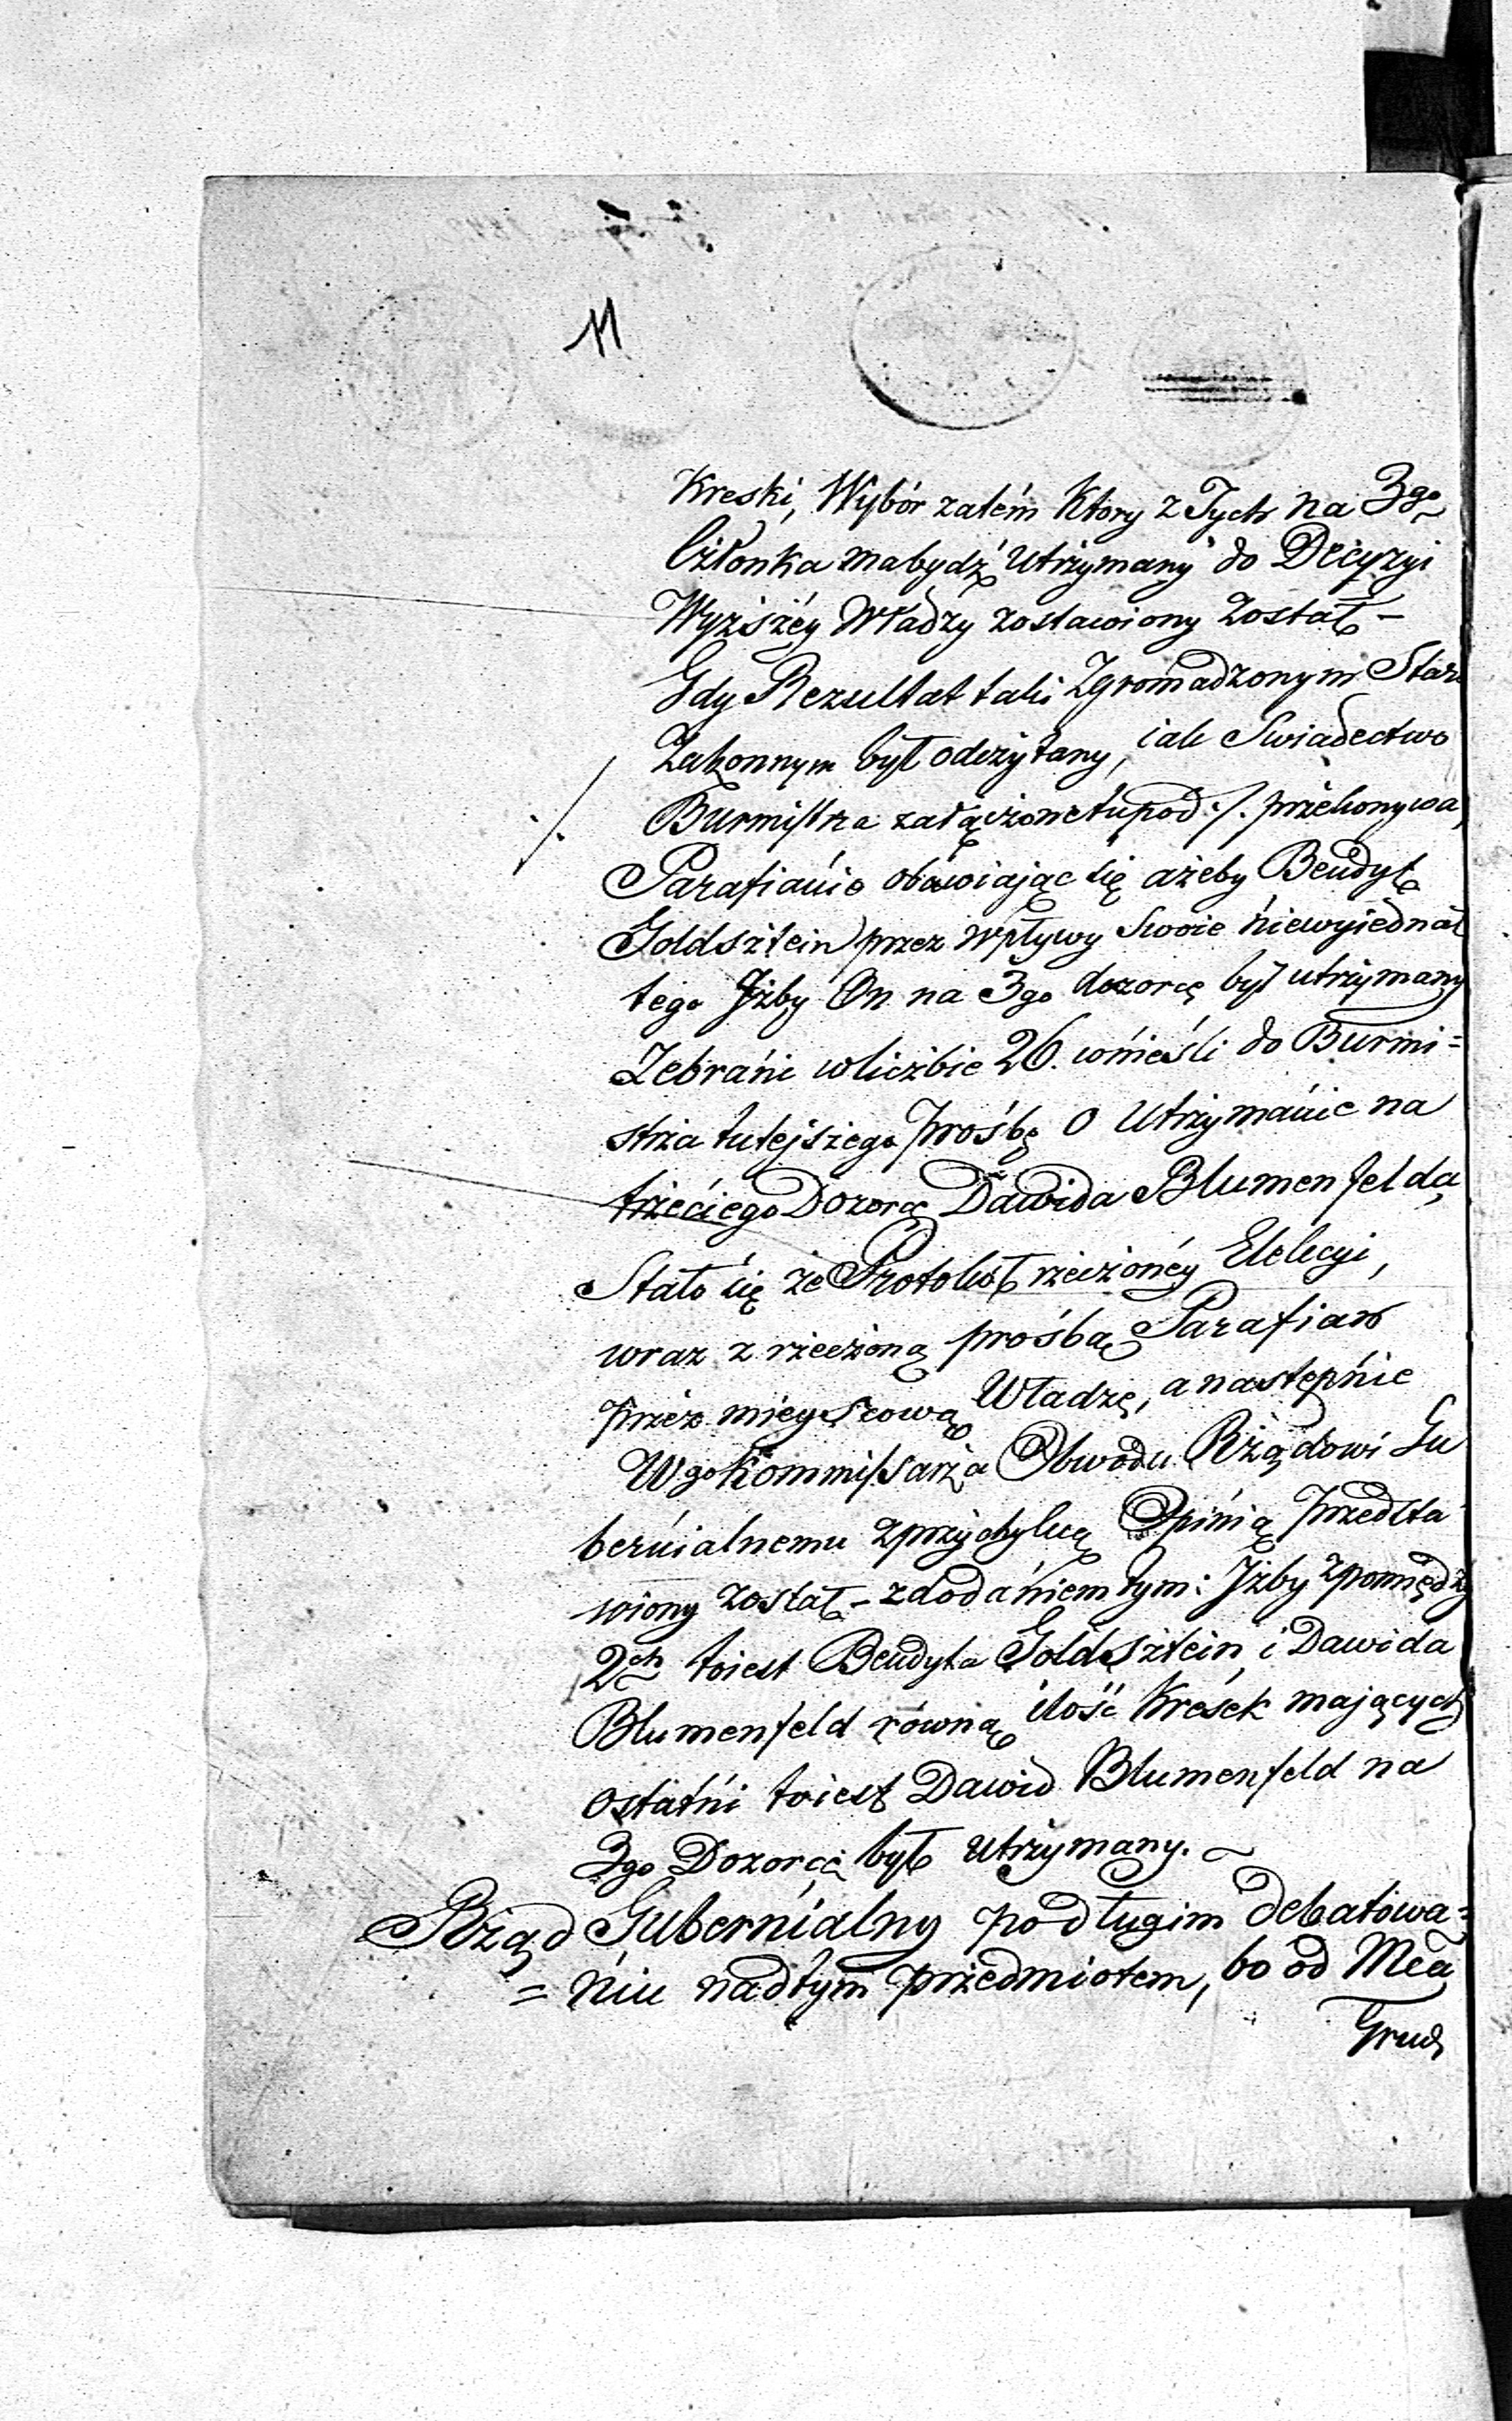 11
Kreski, Wybór zatém Ktory z Tych na 3go
Członka mabydź utrzymany do Decyzyi
Wyższéy Władzy zostawiony został –
Gdy Rezultat taki Zgromadzonym Star
Zakonnym był odczytany, iak Swiadectwo
Burmistrza załączone tu pod ·/· przekonywa,
·/·
Parafianie obawiając się ażeby Bendyt
Goldsztein przez wpływy swoie niewyiednał
tego Jżby On na 3go dozorcę był utrzymany
Zebrani w liczbie 26. wnieśli do Burmi=
strza tutejszego prośbę o utrzymanie na
trzeciego Dozorcę Dawida Blumenfelda
Stało się że Protokół rzeczonéy Elekcyi,
wraz z rzeczoną prośbą Parafian
przez mieyscową Władzę, a następnie
Wgo Kommissarza Obwodu Rządowi Gu
bernialnemu z przychylną Opinią przedsta
wiony został – z dodaniem tym: Jżby z pomiędzy
2ch toiest Bendyta Goldsztein i Dawida
Blumenfeld równą ilość Kresek mających
ostatni toiest Dawid Blumenfeld na
3go Dozorcę był utrzymany. ~
Rząd Gubernialny po długim debatowa=
=niu nad tym przedmiotem, bo od Mca
Grud